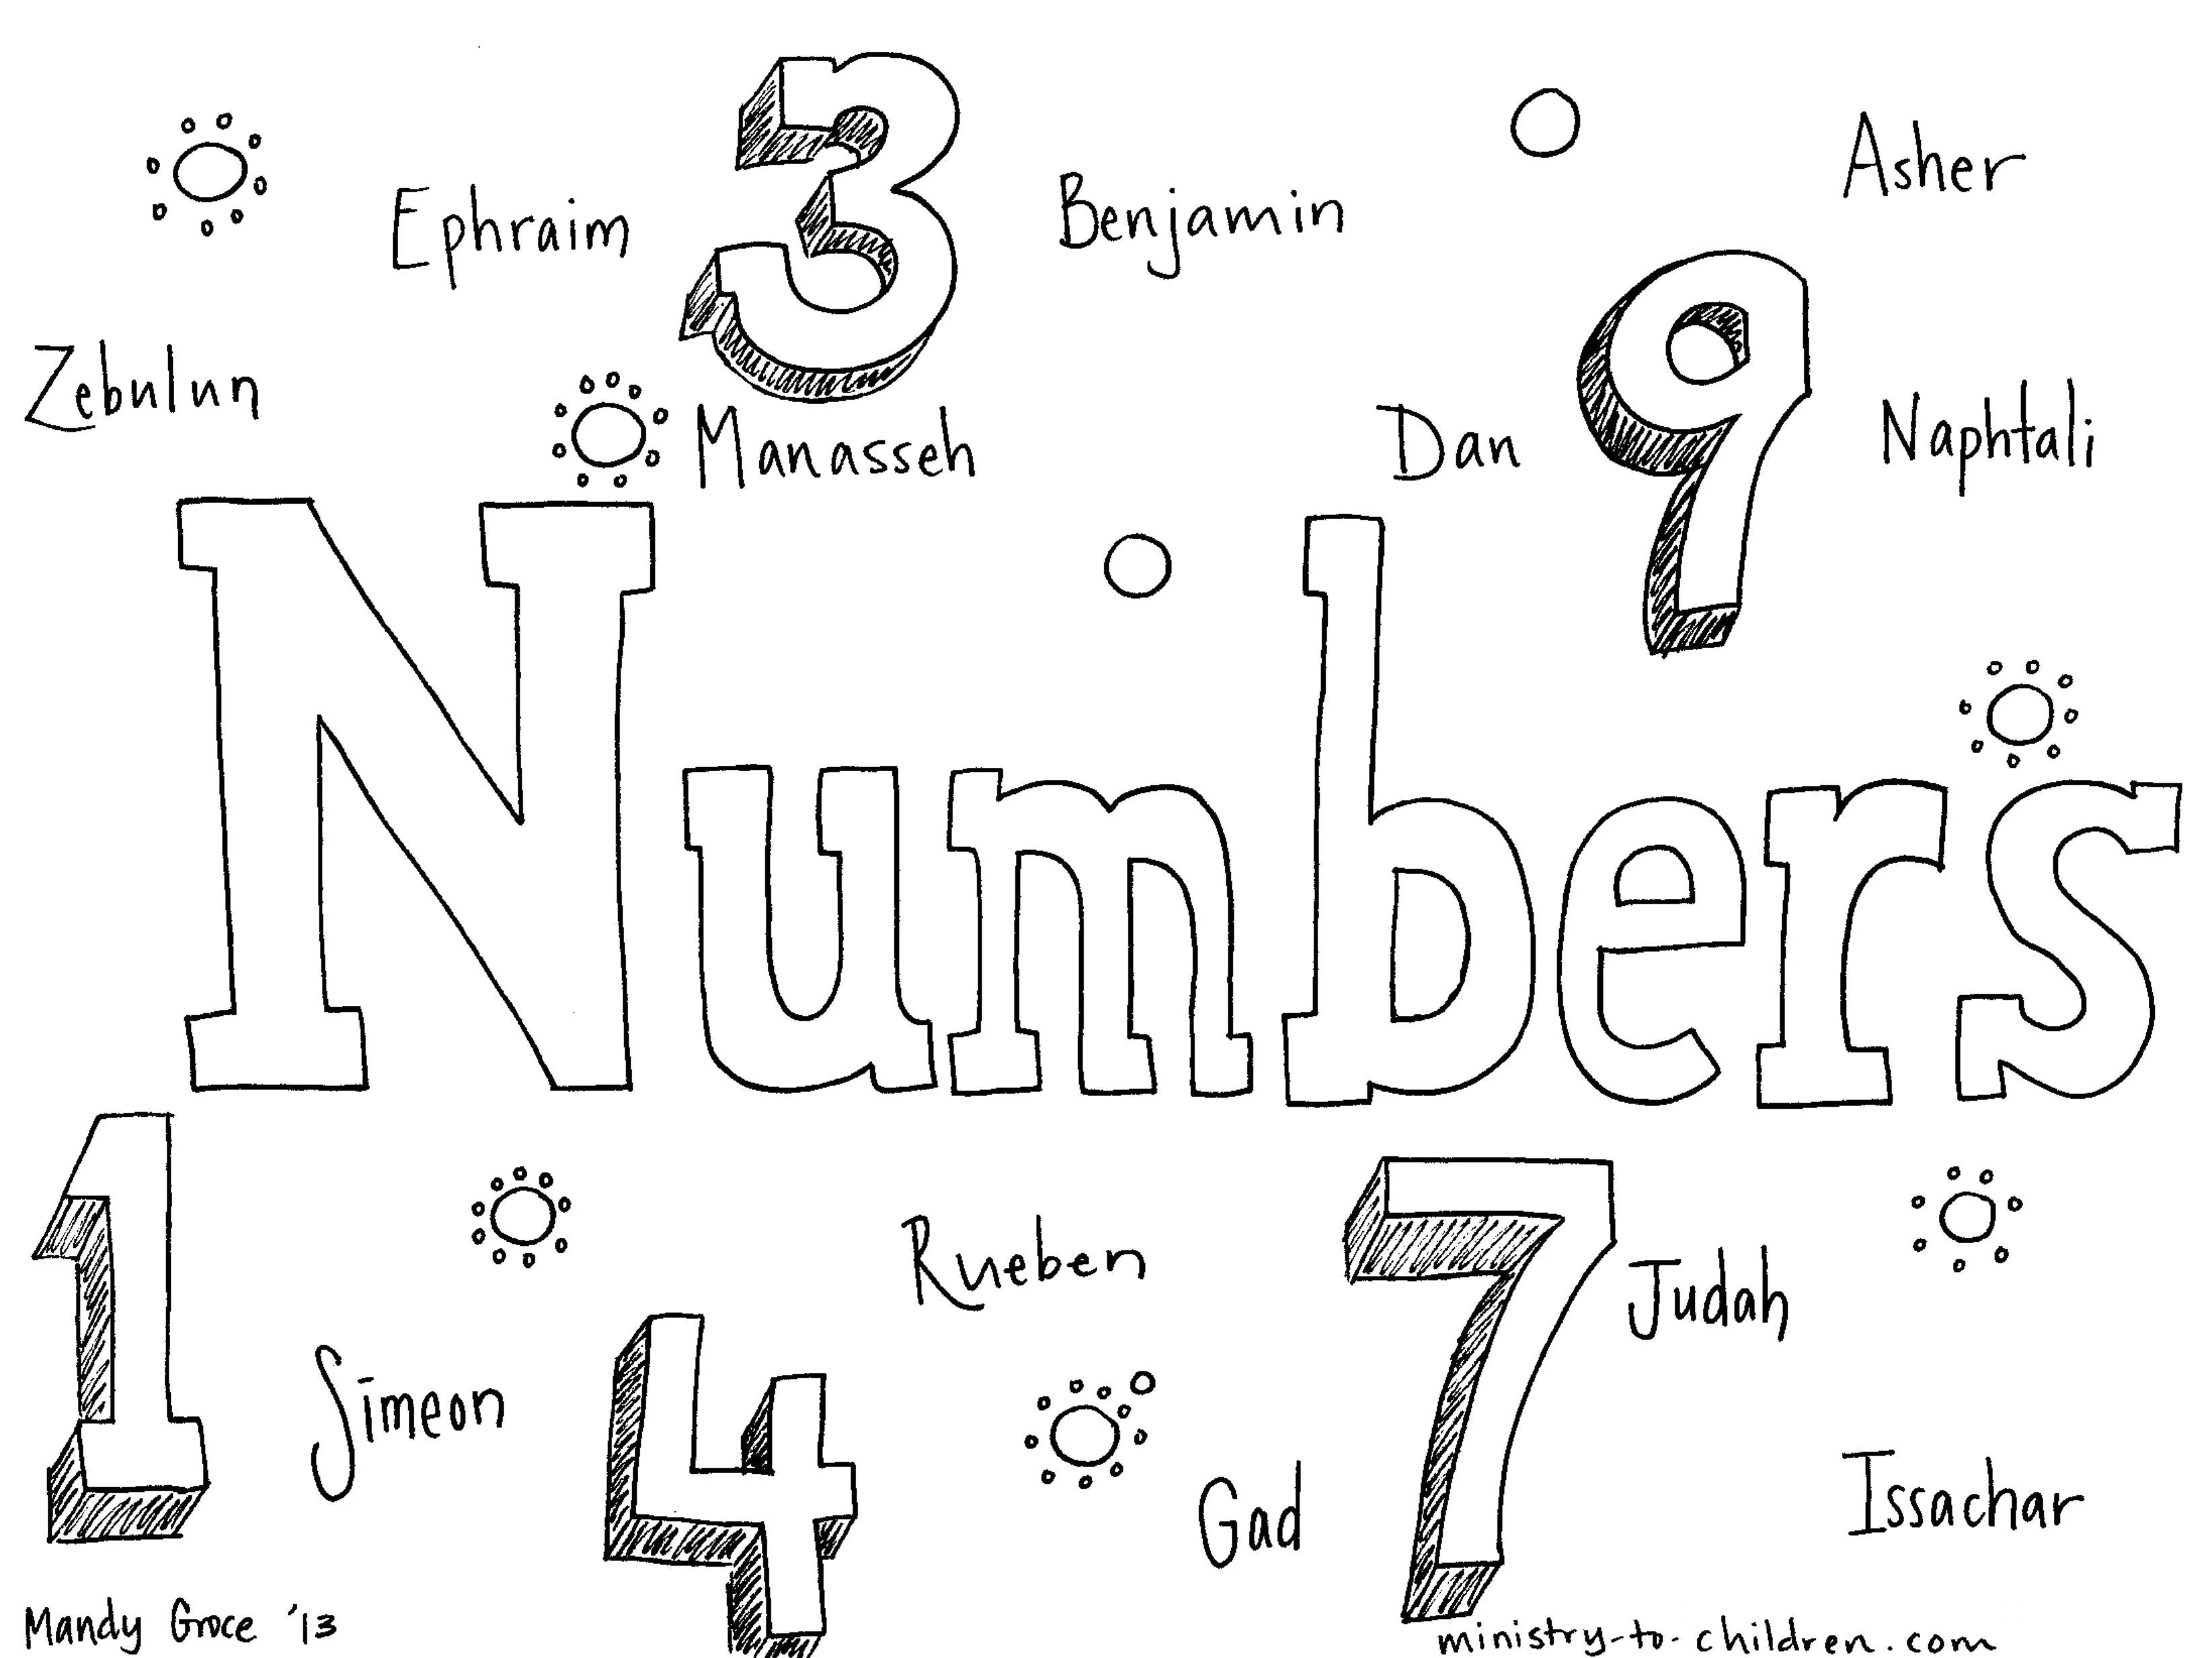 3
Asher
Ephraim
Benjamin
Zebulun
Manasseh
Dan
9
Naphtali
Numbers
1
Rueben
7
Judah
Simeon
4
Gad
Issachar
Mandy Groce '13
ministry-to-children.com